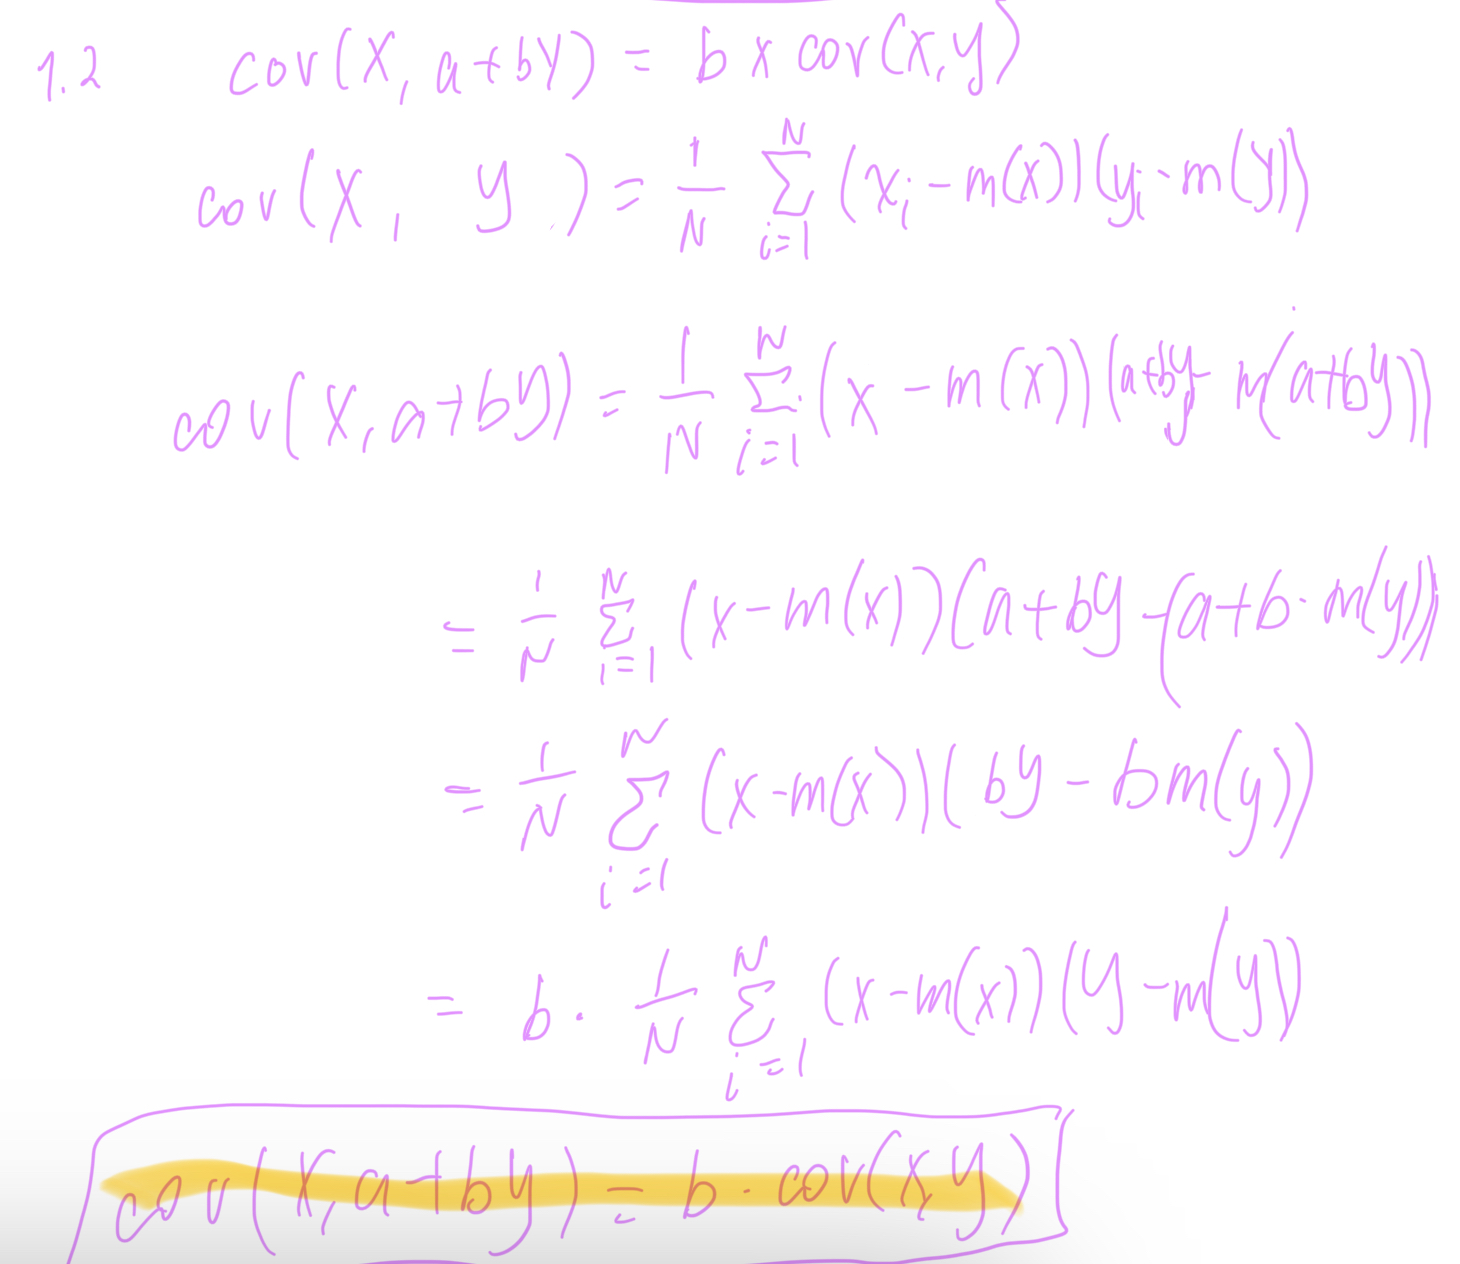 1.2 cov(X, a+bY) = b x cov(X,Y)
cov(X, Y) = 1/N Σ_{i=1}^{N} (x_i - m(X))(y_i - m(Y))
cov(X, a+by) = 1/N Σ_{i=1}^{N} (x - m(x))(a+by - m(a+by))
= 1/N Σ_{i=1}^{N} (x - m(x))(a+by - (a+b·m(y)))
= 1/N Σ_{i=1}^{N} (x - m(x))(by - bm(y))
= b · 1/N Σ_{i=1}^{N} (x - m(x))(y - m(y))
cov(X, a+by) = b · cov(x,y)